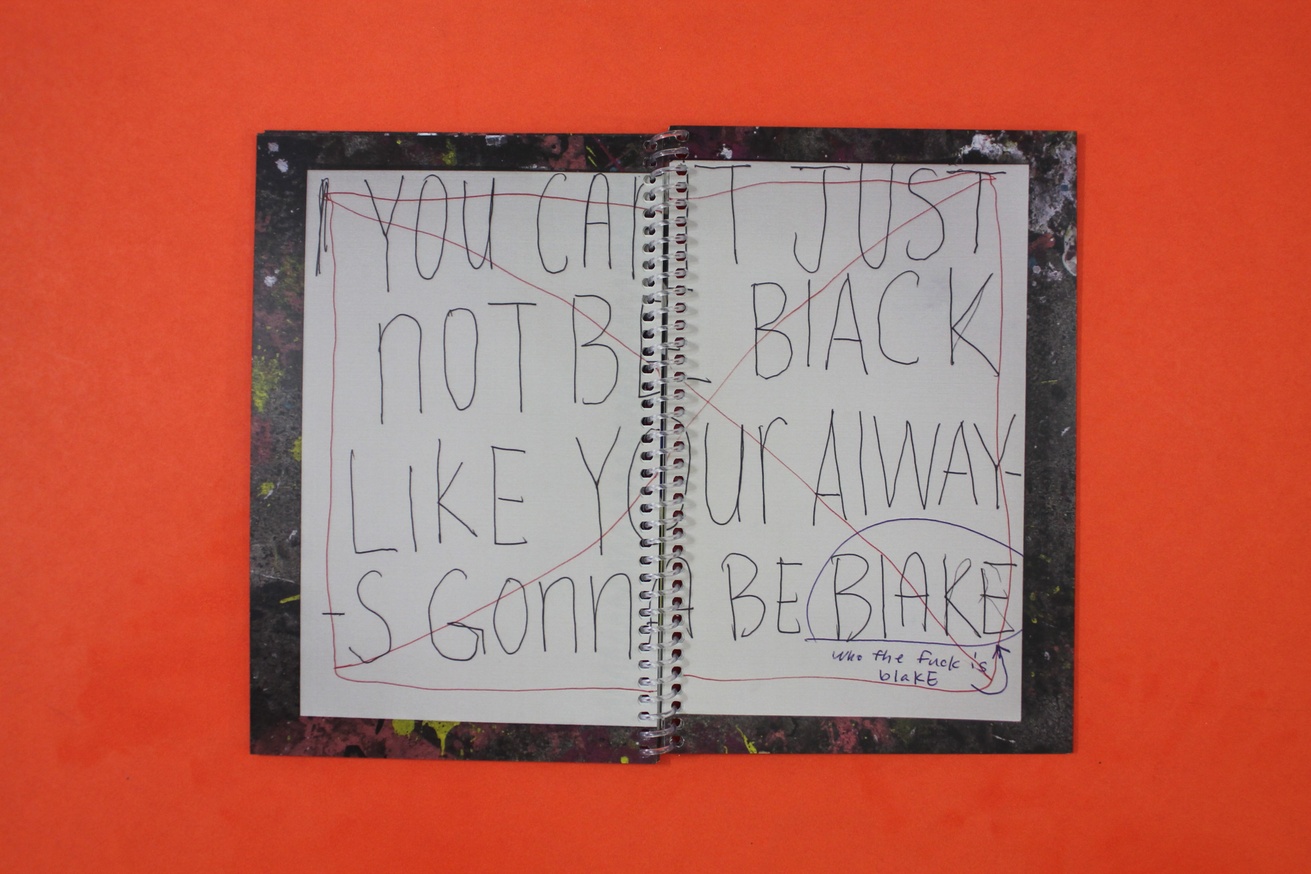 YOU CAN'T JUST
NOT BE BlACK
LIKE YOUr AlWAY-
-S GonnA BE BlAKE
who the fuck is
blaKE